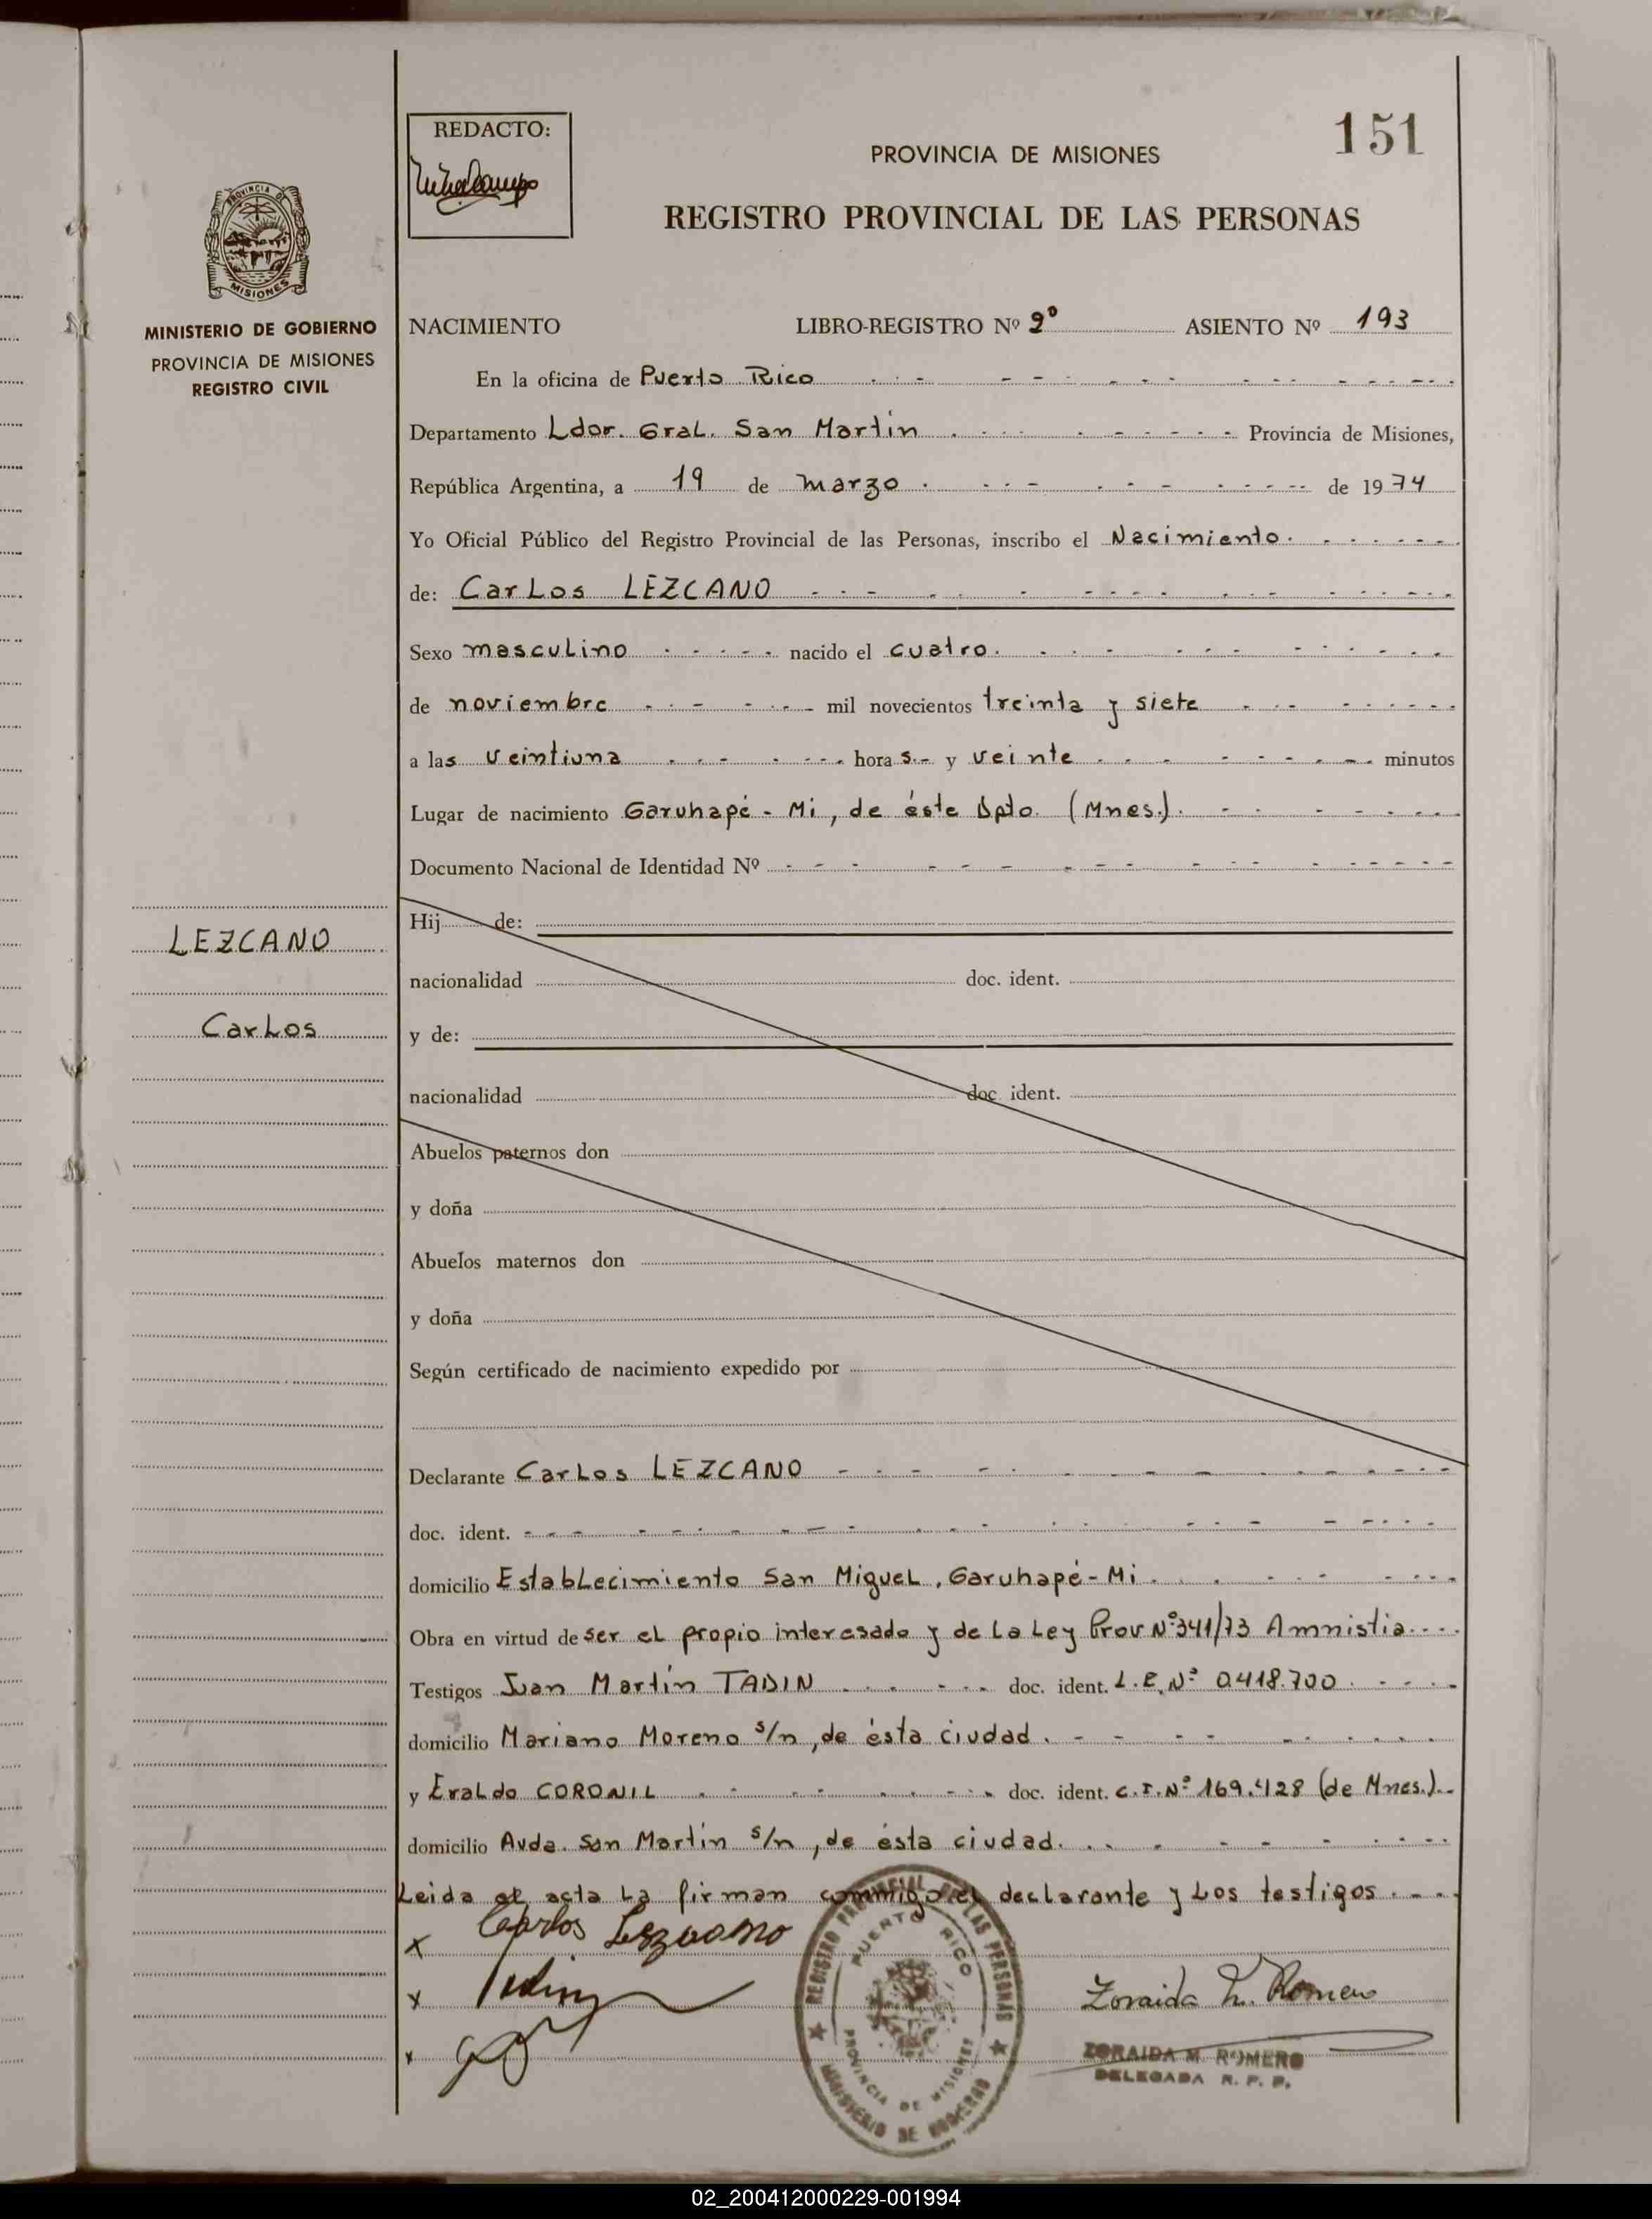 REDACTO:
151
PROVINCIA DE MISIONES
REGISTRO PROVINCIAL DE LAS PERSONAS
PROVINCIA DE
MISIONES
MINISTERIO DE GOBIERNO
PROVINCIA DE MISIONES
REGISTRO CIVIL
NACIMIENTO LIBRO-REGISTRO Nº 2º ASIENTO Nº 193
En la oficina de Puerto Rico
Departamento Ldor. Gral. San Martín Provincia de Misiones,
República Argentina, a 19 de marzo de 1974
Yo Oficial Público del Registro Provincial de las Personas, inscribo el Nacimiento.
de: Carlos LEZCANO
Sexo masculino nacido el cuatro.
de noviembre mil novecientos treinta y siete
a las veintiuna horas.- y veinte minutos
Lugar de nacimiento Garuhapé - Mi, de éste Dpto. (Mnes.).
Documento Nacional de Identidad Nº
Hij de:
LEZCANO
nacionalidad doc. ident.
Carlos
y de:
nacionalidad doc. ident.
Abuelos paternos don
y doña
Abuelos maternos don
y doña
Según certificado de nacimiento expedido por
Declarante Carlos LEZCANO
doc. ident.
domicilio Establecimiento San Miguel, Garuhapé-Mi.
Obra en virtud de ser el propio interesado y de la Ley Prov Nº341/73 Amnistia.
Testigos Juan Martín TADIN doc. ident. L.E.Nº 0.418.700.
domicilio Mariano Moreno s/n, de ésta ciudad.
y Eraldo CORONIL doc. ident. C.I.Nº 169.428 (de Mnes.).
domicilio Avda. San Martín s/n, de ésta ciudad.
Leida el acta la firman conmigo el declarante y los testigos.
x Carlos Lezcano
x
x
REGISTRO PROVINCIAL DE LAS PERSONAS
PUERTO RICO
PROVINCIA DE MISIONES
MINISTERIO DE GOBIERNO
Zoraida M. Romero
ZORAIDA M. ROMERO
DELEGADA R. P. P.
02_200412000229-001994